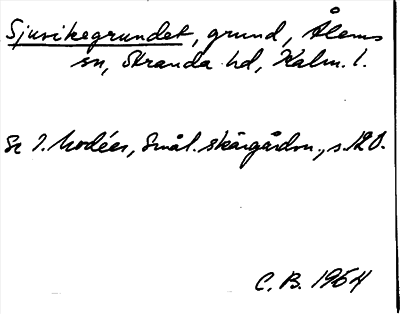 Sjuvikegrundet, grund, Ålems
sn, Stranda hd, Kalm. l.
Se I. Modéer, Smål. skärgårdsn., s. 120.
C. B. 1964